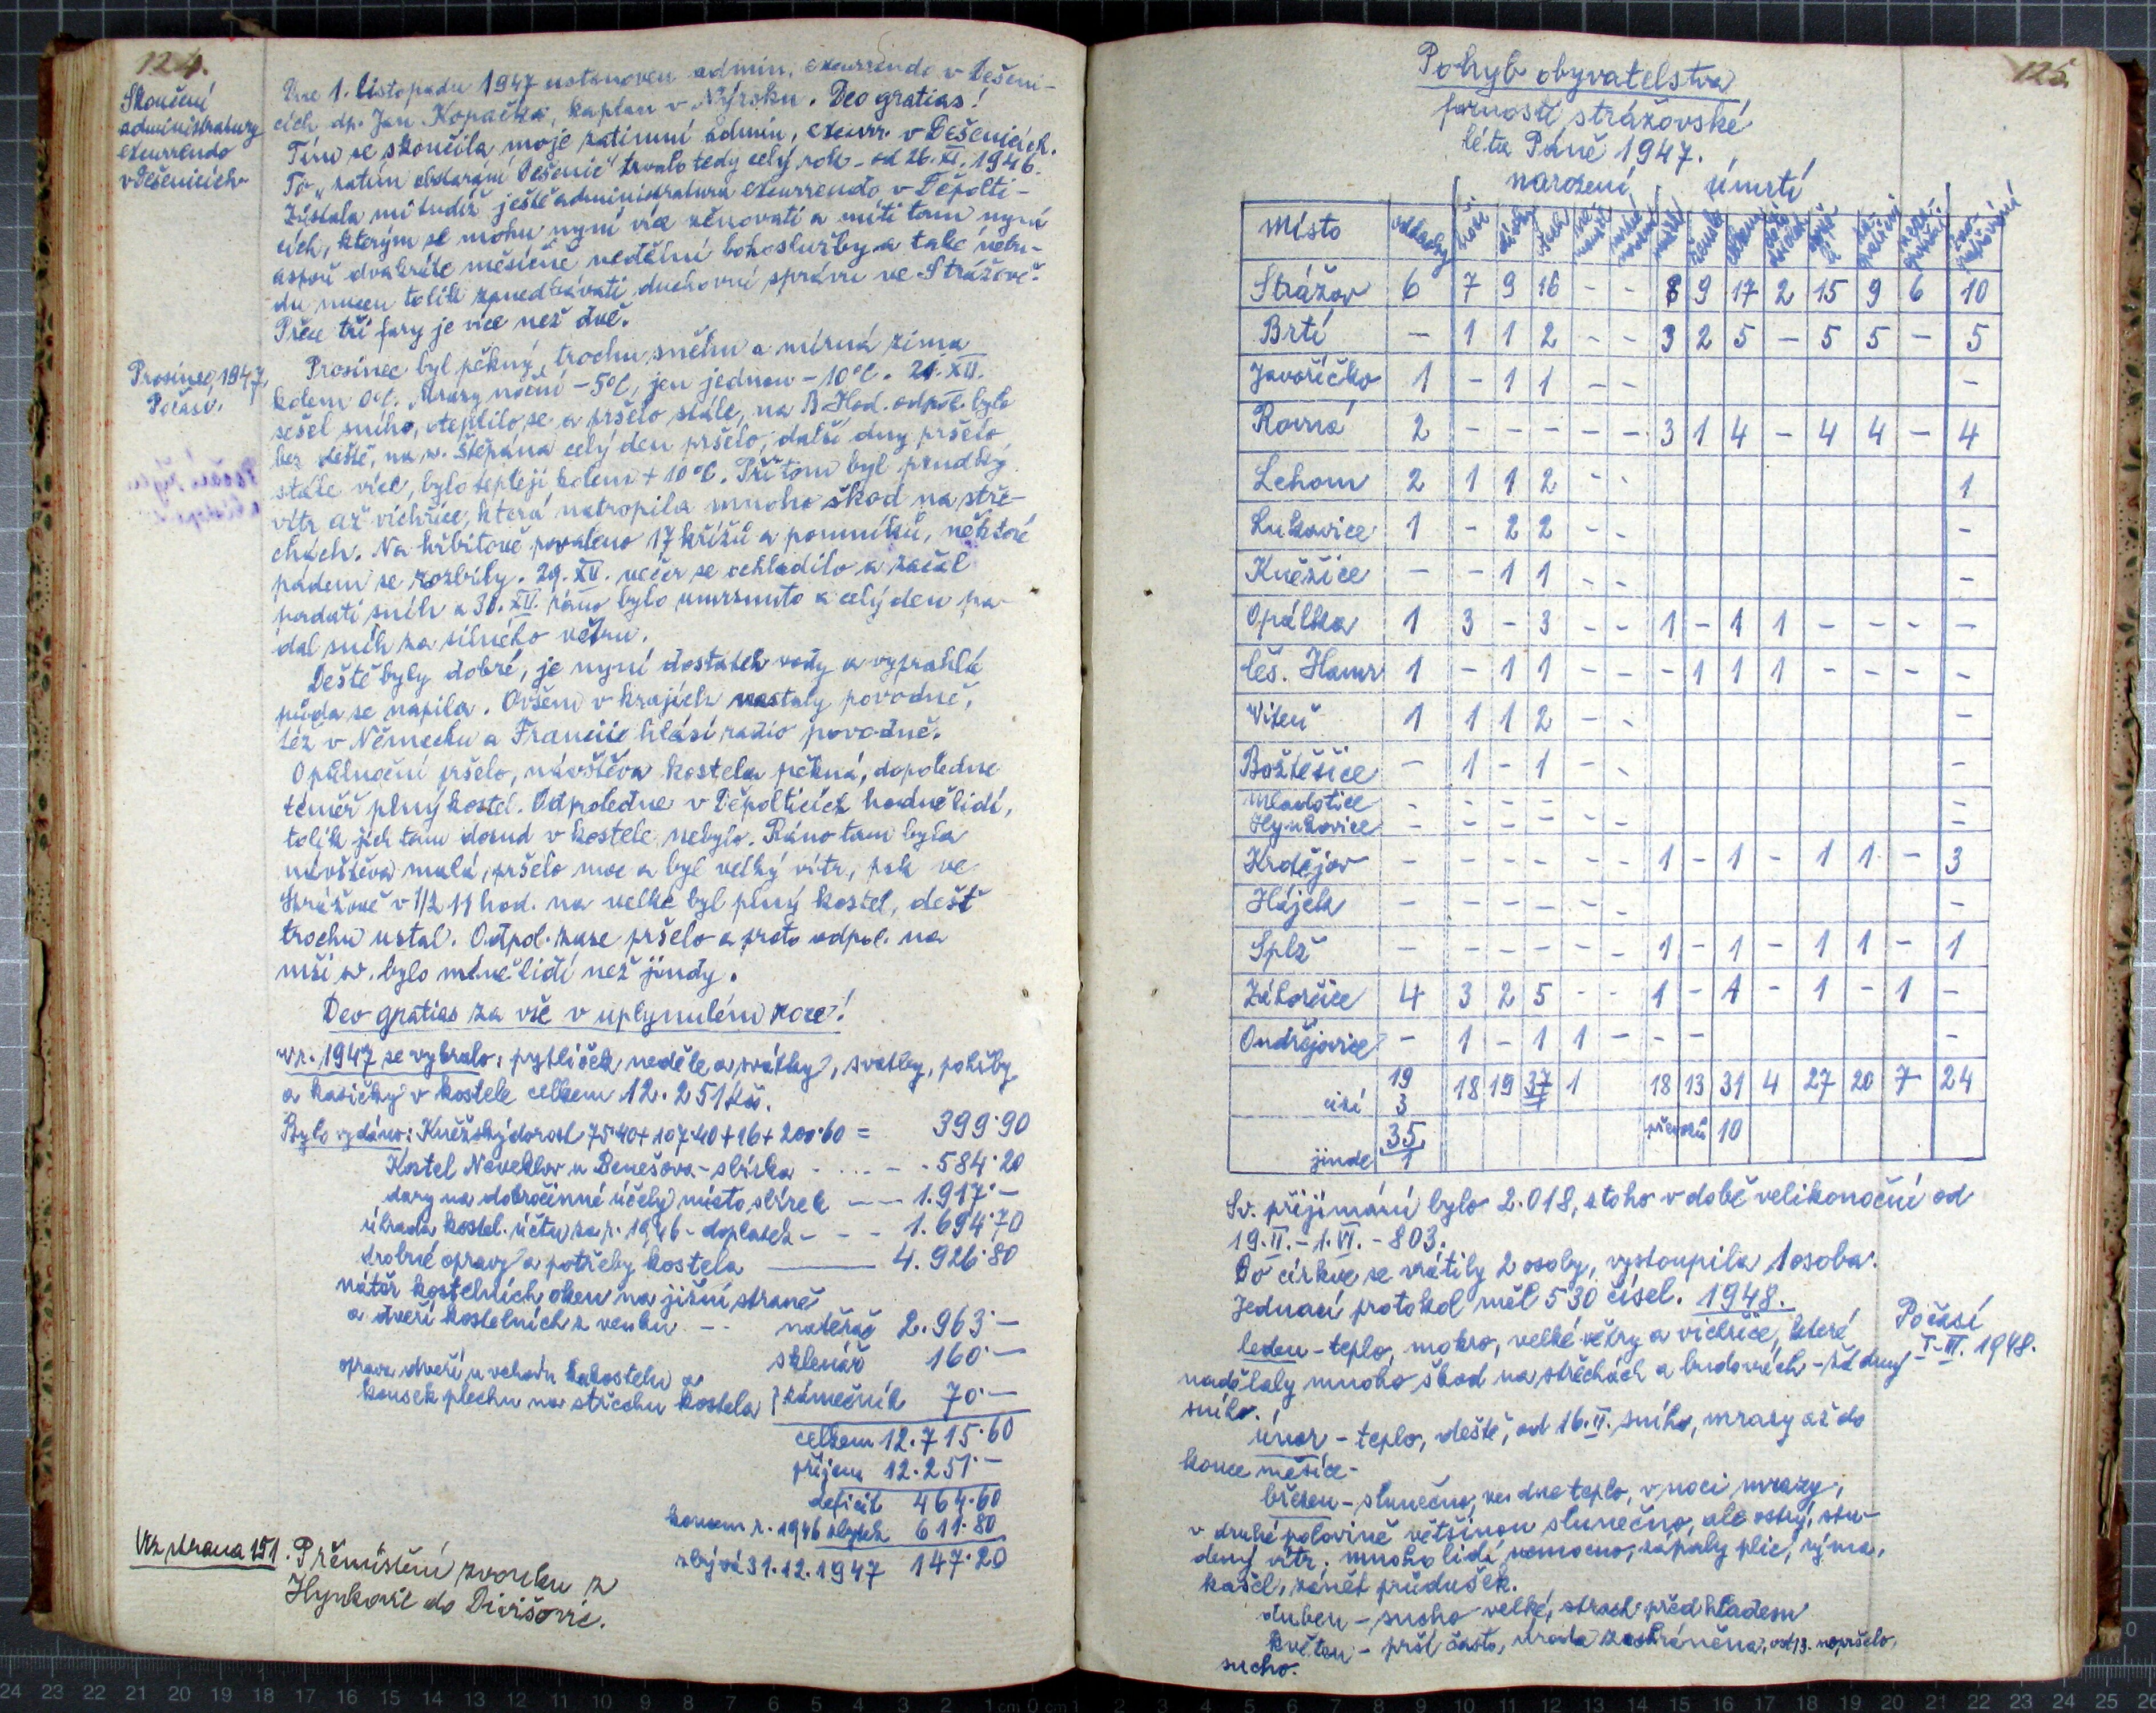 124.
Skončení
administratury
excurrendo
v Dešenicích
Dne 1. listopadu 1947 ustanoven admin. excurrendo v Dešeni-
cích dp. Jan Kopačka, kaplan v Nýrsku. Deo gratias!
Tím se skončila moje zatímní admin. excurr. v Dešenicích.
To "zatím obstarání Dešenic" trvalo tedy celý rok - od 26. XI. 1946.
Zůstala mi tudíž ještě administratura excurrendo v Děpolti-
cích, kterým se mohu nyní více věnovati a míti tam nyní
aspoň dvakráte měsíčně nedělní bohoslužby a také nebu-
du muset tolik zanedbávati duchovní správu ve Strážově.
Přece tři fary je více než dvě.
Prosinec 1947.
Počasí.
Prosinec byl pěkný, trochu sněhu a mírná zima
kolem 0°C. Mrazy noční -5°C, jen jednou -10°C. 21. XII.
sešel sníh, oteplilo se a pršelo stále, na B. Hod. odpol. bylo
bez deště, na sv. Štěpána celý den pršelo, další dny pršelo
stále více, bylo tepleji kolem +10°C. Při tom byl prudký
vítr až vichřice, která natropila mnoho škod na stře-
chách. Na hřbitově povaleno 17 křížů a pomníků, některé
pádem se rozbily. 29. XII. večer se ochladilo a začal
padati sníh a 30. XII. ráno bylo umrznuto a celý den pa-
dal sníh za silného větru.
Deště byly dobré, je nyní dostatek vody a vyprahlá
půda se napila. Ovšem v krajích nastaly povodně,
též v Německu a Francii hlásí radio povodně.
O půlnoční pršelo, návštěva kostela pěkná, dopoledne
téměř plný kostel. Odpoledne v Děpolticích hodně lidí,
tolik jich tam dosud v kostele nebylo. Ráno tam byla
návštěva malá, pršelo moc a byl velký vítr, pak ve
Strážově v 1/2 11 hod. na velké byl plný kostel, déšť
trochu ustal. Odpol. zase pršelo a proto odpol. na
mši sv. bylo méně lidí než jindy.
Deo gratias za vše v uplynulém roce!
V r. 1947 se vybralo: pytlíček neděle a svátky, svatby, pohřby
a kasičky v kostele celkem 12.251 Kčs.
Bylo vydáno: Kněžský dorost 75·40+107·40+16+200·60 = 399·90
Kostel Neveklov u Benešova - sbírka - ... - - 584·20
dary na dobročinné účely místo sbírek —— 1.917·-
úhrada kostel. účtu za r. 1946 - doplatek - - - 1.694·70
drobné opravy a potřeby kostela ——— 4.926·80
nátěr kostelních oken na jižní straně
a dveří kostelních z venku - - natěrač 2.963·-
sklenář 160·-
oprava dveří u vchodu do kostela a
kousek plechu na střechu kostela } zámečník 70·-
celkem 12.715·60
příjem 12.251·-
deficit 464·60
koncem r. 1946 zbytek 611·80
zbývá 31.12.1947 147·20
Viz strana 151. Přemístění zvonku z
Hynkovic do Divišovic.
125.
Pohyb obyvatelstva
farnosti strážovské
léta Páně 1947.
narození úmrtí
Místo oddavky hoši dívky všech
Strážov 6 7 9 16 - - 8 9 17 2 15 9 6 10
Brtí - 1 1 2 - - 3 2 5 - 5 5 - 5
Javoříčko 1 - 1 1 - - -
Rovná 2 - - - - - 3 1 4 - 4 4 - 4
Lehom 2 1 1 2 - - 1
Lukavice 1 - 2 2 - - -
Kněžice - - 1 1 - - -
Opálka 1 3 - 3 - - 1 - 1 1 - - - -
Čes. Hamr 1 - 1 1 - - - 1 1 1 - - - -
Viteň 1 1 1 2 - - -
Božtěšice - 1 - 1 - - -
Mladotice - - - - - - -
Hynkovice - - - - - - -
Krdějov - - - - - - 1 - 1 - 1 1 - 3
Hájek - - - - - - -
Splž - - - - - - 1 - 1 - 1 1 - 1
Záhorčice 4 3 2 5 - - 1 - 1 - 1 - 1 -
Ondřejovice - 1 - 1 1 - - - -
19 18 19 37 1 18 13 31 4 27 20 7 24
cizí 3
35 převozů 10
jinde 1
Sv. přijímání bylo 2.018, z toho v době velikonoční od
19. II. - 1. VI. - 803.
Do církve se vrátily 2 osoby, vystoupila 1 osoba.
Jednací protokol měl 530 čísel. 1948.
Počasí
I-III. 1948.
leden - teplo, mokro, velké větry a vichřice, které
nadělaly mnoho škod na střechách a budovách - žádný
sníh.
únor - teplo, deště, od 16. II. sníh, mrazy až do
konce měsíce.
březen - slunečno, ve dne teplo, v noci mrazy,
v druhé polovině většinou slunečno, ale ostrý, stu-
dený vítr, mnoho lidí nemocno, zápaly plic, rýma,
kašel, zánět průdušek.
duben - sucho velké, strach před hladem
květen - prší často, úroda zachráněna, od 13. nepršelo,
sucho.